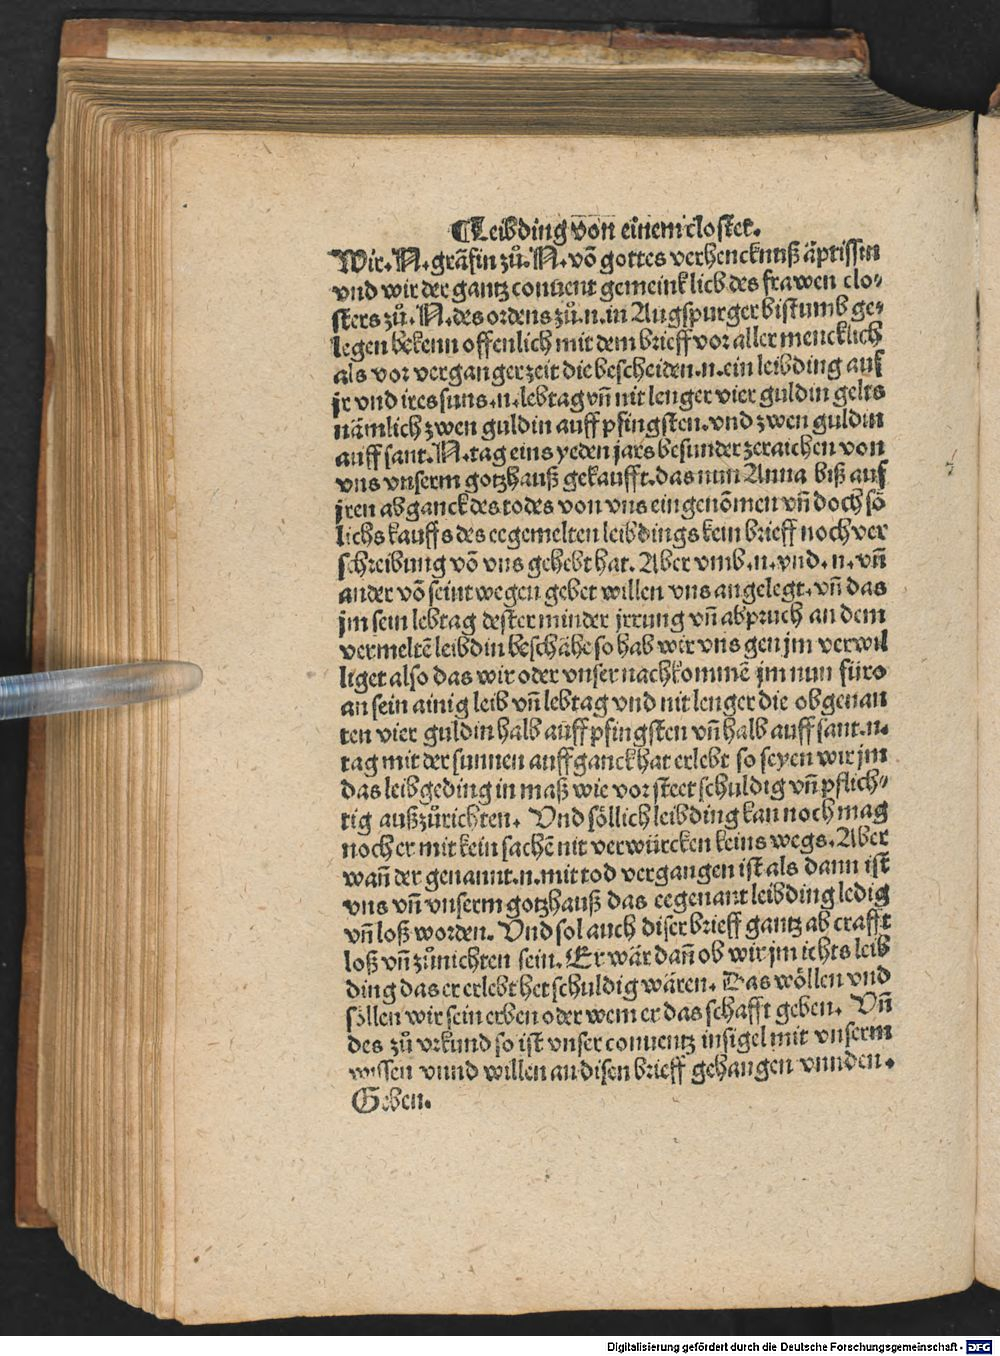 ¶Leibding von einem closter.
Wir. N. gräfin zů. N. võ gottes verhencknuß äptissin
vnd wir der gantz conuent gemeinklich des frawen clo-
sters zů. N. des ordens zů. n. in Augspurger bistumb ge-
legen bekenn offenlich mit dem brieff vor aller mencklich
als vor verganger zeit die bescheiden. n. ein leibding auf
jr vnd ires suns. n. lebtag vñ nit lenger vier guldin gelts
nämlich zwen guldin auff pfingsten. vnd zwen guldin
auff sant. N. tag eins yeden jars besunder zeraichen von
vns vnserm gotzhauß gekaufft. das nun Anna biß auf
jren abganck des todes von vns eingenõmen vñ doch sõ
lichs kauffs des eegemelten leibdings kein brieff noch ver
schreibung võ vns gehebt hat. Aber vmb. n. vnd. n. vñ
ander võ seint wegen gebet willen vns angelegt. vñ das
jm sein lebtag dester minder jrrung vñ abpruch an dem
vermeltẽ leibdin beschähe so hab wir vns gen jm verwil
liget also das wir oder vnser nachkommẽ jm nun füro
an sein ainig leib vñ lebtag vnd nit lenger die obgenan
ten vier guldin halb auff pfingsten vñ halb auff sant. n.
tag mit der sunnen auffganck hat erlebt so seyen wir jm
das leibgeding in maß wie vor steet schuldig vñ pflich-
tig außzůrichten. Vnd söllich leibding kan noch mag
noch er mit kein sachẽ nit verwürcken keins wegs. Aber
wañ der genannt. n. mit tod vergangen ist als dann ist
vns vñ vnserm gotzhauß das eegenant leibding ledig
vñ loß worden. Vnd sol auch diser brieff gantz ab crafft
loß vñ zůnichten sein. Er wär dañ ob wir jm ichts leib
ding das er erlebt het schuldig wären. Das wöllen vnd
söllen wir sein erben oder wem er das schafft geben. Vñ
des zů vrkund so ist vnser conuentz insigel mit vnserm
wissen vnnd willen an disen brieff gehangen vnnden.
Geben.
Digitalisierung gefördert durch die Deutsche Forschungsgemeinschaft - DFG